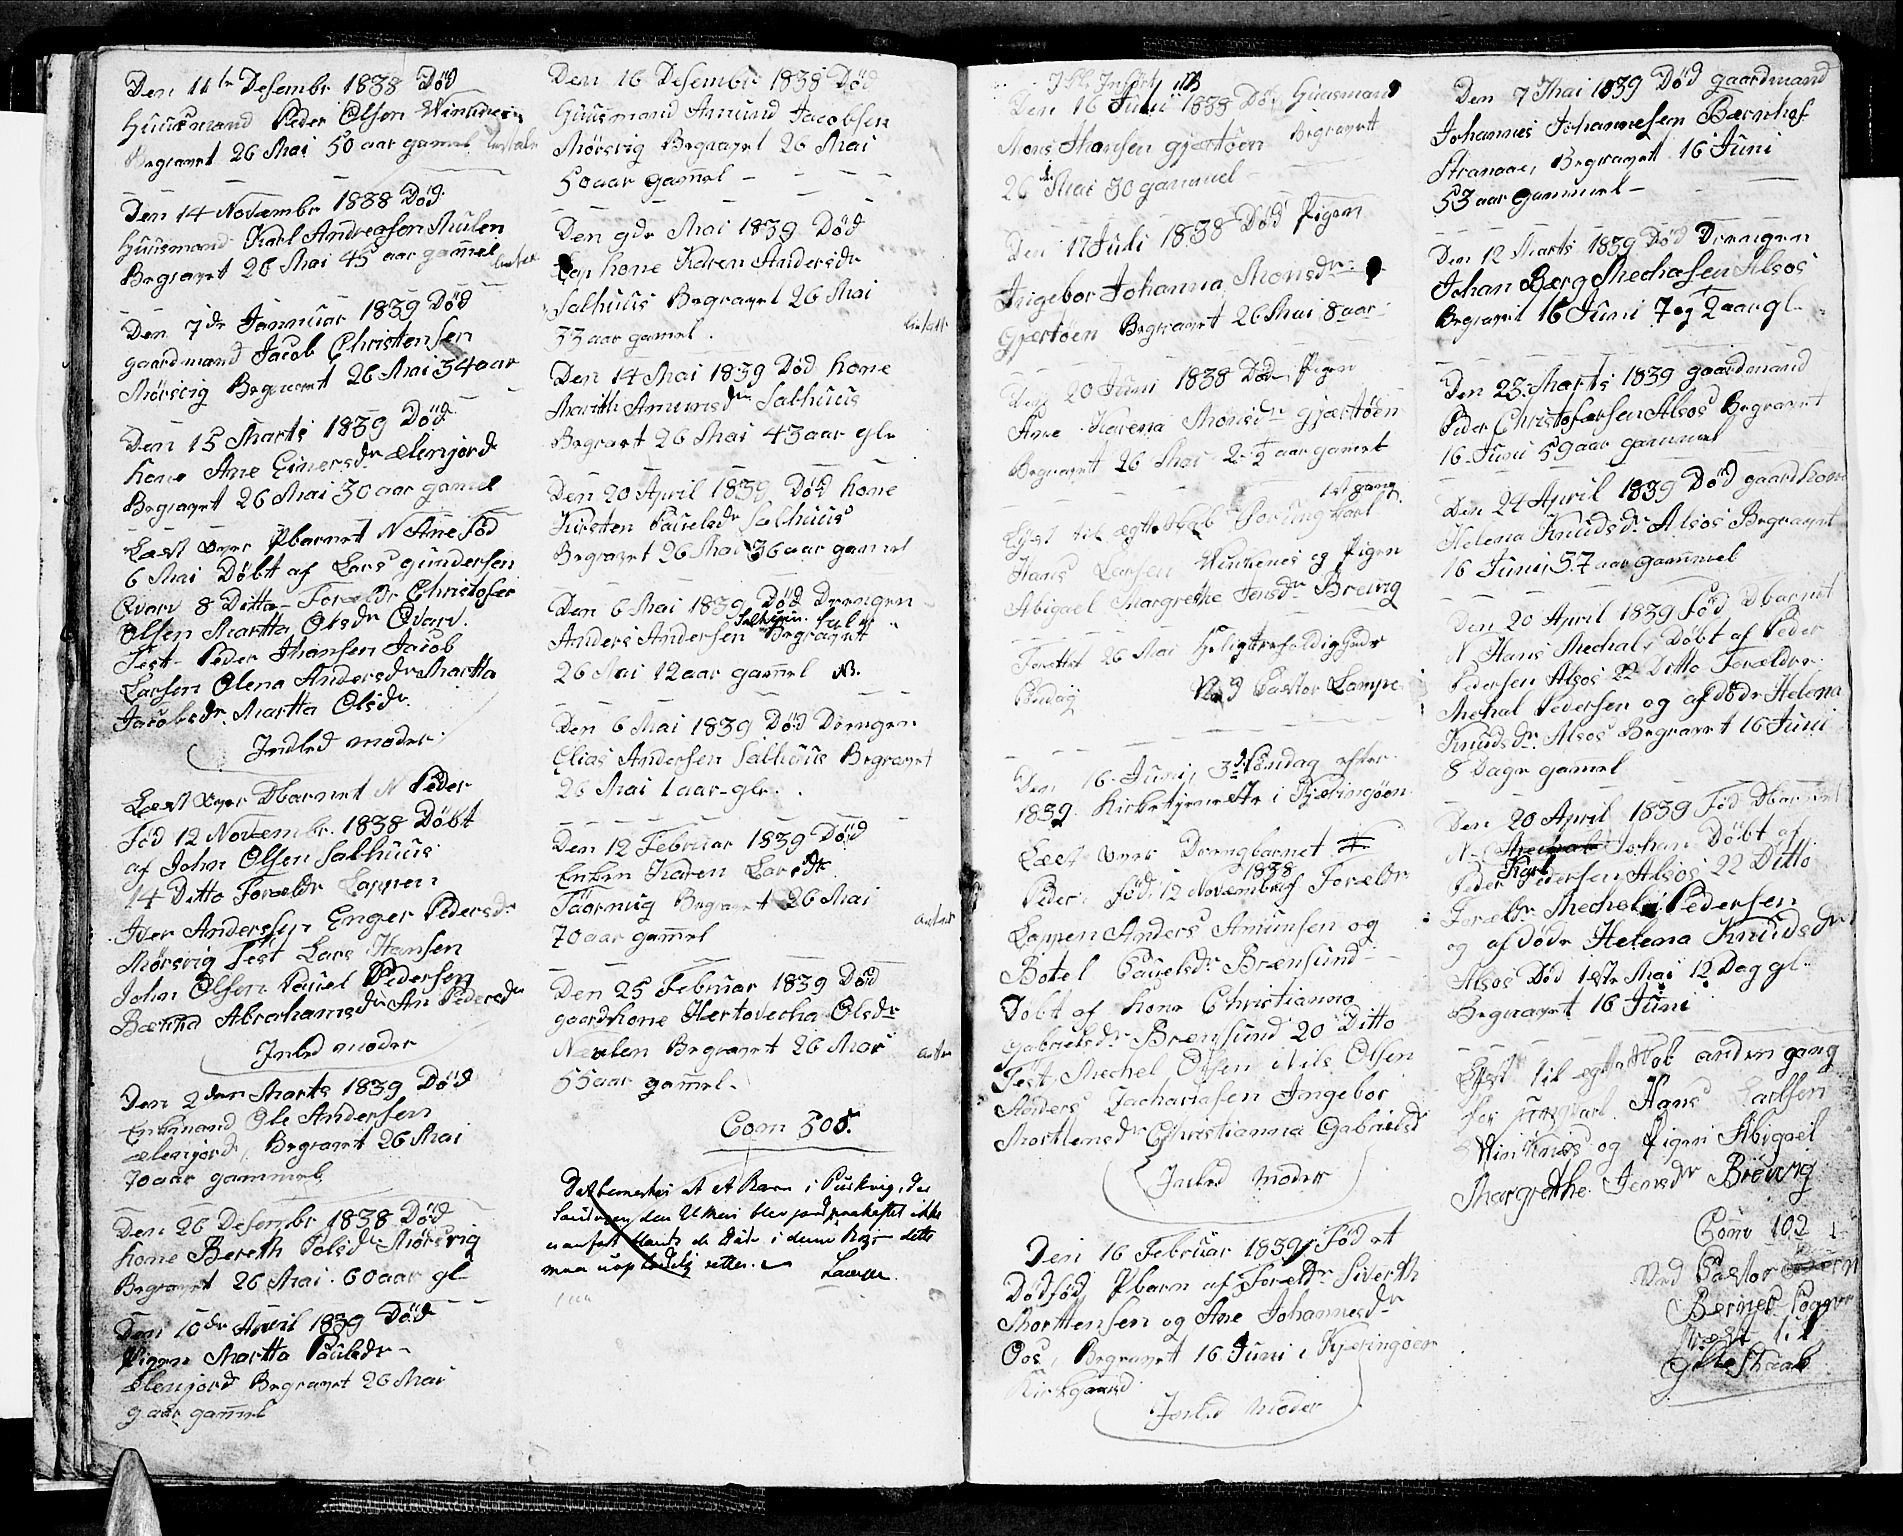 Den 11te Desembr 1838 Død
Huusmand Peder Olsen
Begravet 26 Mai 50 aar gamel
Den 14 Novembr 1838 Død
Huusmand Karl Andreasen Mulen
Begravet 26 Mai 45 aar gamel
Den 7de Jannuar 1839 Død
gaardmand Jacob Christensen
Mørsvig Begravet 26 Mai 34 aar
Den 15 Marts 1839 Død
kone Ane Einersdr Ælenjord
Begravet 26 Mai 30 aar gamel
Læst over Pbarnet N Ane Fød
6 Mai Døbt af Lars gundersen
Qvarv 8 Ditto Forældr Christofer
Olsen Martta Olsdr Qvarv.
Test Peder Jhansen Jacob
Larsen Olena Andersdr Martta
Jacobsdr. Martta Olsdr.
Inled moder
Læst over Dbarnet N Peder
Fød 12 Novembr. 1838 Døbt
af John Olsen Salhuus
14 Ditto Forældr Lappen
Iver Andersen Enger Pedersdr
Mørsvig Test Lars Hansen
John Olsen Pauel Pedersen
Abrahamsdr An Pedersdr
Inled moder
Den 2den Marts 1839 Død
Enkmand Ole Andersen
Ælenjord, Begravet 26 Mai
70 aar gammel
Den 26 Desembr 1838 Død
kone Bereth Polsdr Mørsvig
Begravet 26 Mai 60 aar gl
Den 10de April 1839 Død
Pigen Martta Paulsdr
Ælenjord Begravet 26 Mai
9 aar gamel
Den 16 Desembr 1838 Død
Huusmand Amund Jacobsen
Mørsvig Begravet 26 Mai
50 aar gamel
Den 9de Mai 1839 Død
kone Karen Andersdr
Salhuus Begravet 26 Mai
33 aar gamel.
Den 14 Mai 1839 Død kone
Marith Amunsdr Salhuus
Begravet 26 Mai 43 aar gl
Den 20 April 1839 Død kone
Kirsten Pauelsdr Salhuus
Begravet 26 Mai 36 aar gamel
Den 6 Mai 1839 Død Drengen
Salhuus
Anders Andersen Begravet
26 Mai 12 aar gamel N.
Den 6 Mai 1839 Død Drengen
Elias Andersen Salhuus Begravet
26 Mai 1 aar gl.
Den 12 Februar 1839 Død
Enken Karen Larsdr
Begravet 26 Mai
70 aar gamel
Den 25 Februar 1839 Død
gaardkone Hertovecha Olsdr
Nævlen Begravet 26 Mai
55 aar gamel.
Com 50
Det bemærkes at et Barn i
den Mai blev
dette
Den 16 Juni 1838 Død Huusmand
Mons Hansen gjærtøen Begravett
26 Mai 30 gammel
Den 17 Juli 1838 Død Pigen
Ingebor Johanna Monsdr
Gjærtøen Begravet 26 Mai 8 aar
Den 20 Juni 1838 Død Pigen
Ane Karena Monsdr Gjærtøen
Begravet 26 Mai 2 1/2 aar gamel
1st gang
Lyst til ægteskab for ung karl
Hans Larsen Vinkenes og Pigen
Abigael Margrethe Jensdr Brevig
Forettet 26 Mai Heligtrefoldigheds
Søndag Ved Pastor Lampe
Den 16 Juni, 3de Søndag efter
1839 Kirketjeneste i Kjæringøen
Læst over Drengbarnet
1838
Peder, fød 12 November Forældr
Lappen Anders Amunsen og
Botel Pauelsdr Brænsund
Døbt af kone Christianna
Gabrielsdr Brænsund 20 Ditto
Test Mechel Olsen Nils Olsen
Anders Zachariasen Ingebor
Morttensdr Christianna Gabrielsdr
Inled moder
Den 16 Februar 1839 Fød et
Dødfød Pbarn af Forældr Siverth
Morttensen og Ane Johannesdr
Oos, Begravet 16 Juni i Kjæringøen
Kirkgaard
Inled moder
Den 7 Mai 1839 Død gaardmand
Johannes Johannesen Bærnhof
Begravet 16 Juni
53 aar gammel
Den 12 Marts 1839 Død Drengen
Johan Bærg Mechelsen Alsos
Begravet 16 Juni 7 og 1/2 aar gl
Den 23 Marts 1839 gaardmand
Peder Christofersen Alsos Begravet
16 Juni 59 aar gammel
Den 24 April 1839 Død gaardkone
Helena Knudsdr Alsos Begravet
16 Juni 37 aar gammel
Den 20 April 1839 Fød Dbarnet
N Hans Mechal, Døbt af Peder
Pedersen Alsos 22 Ditto Forældre
Mechal Pedersen og afdøde Helena
Knudsdr Alsos Begravet 16 Juni
8 Dage gamel
Den 20 April 1839 Fød Dbarnet
N. Johan Døbt af
Karl
Peder Pedersen Alsos 22 Ditto
Forældr Mechel Pedersen
og afdøde Helena Knudsdr
Alsos Død 1ste Mai 12 Dag gl
Begravet 16 Juni
Lyst til ægteskab anden gang
for ungkarl Hans Larsen
Vinkenes og Pigen Abigael
Margrethe Jensdr Brevig
Com 102
Ved Pastor
Berner